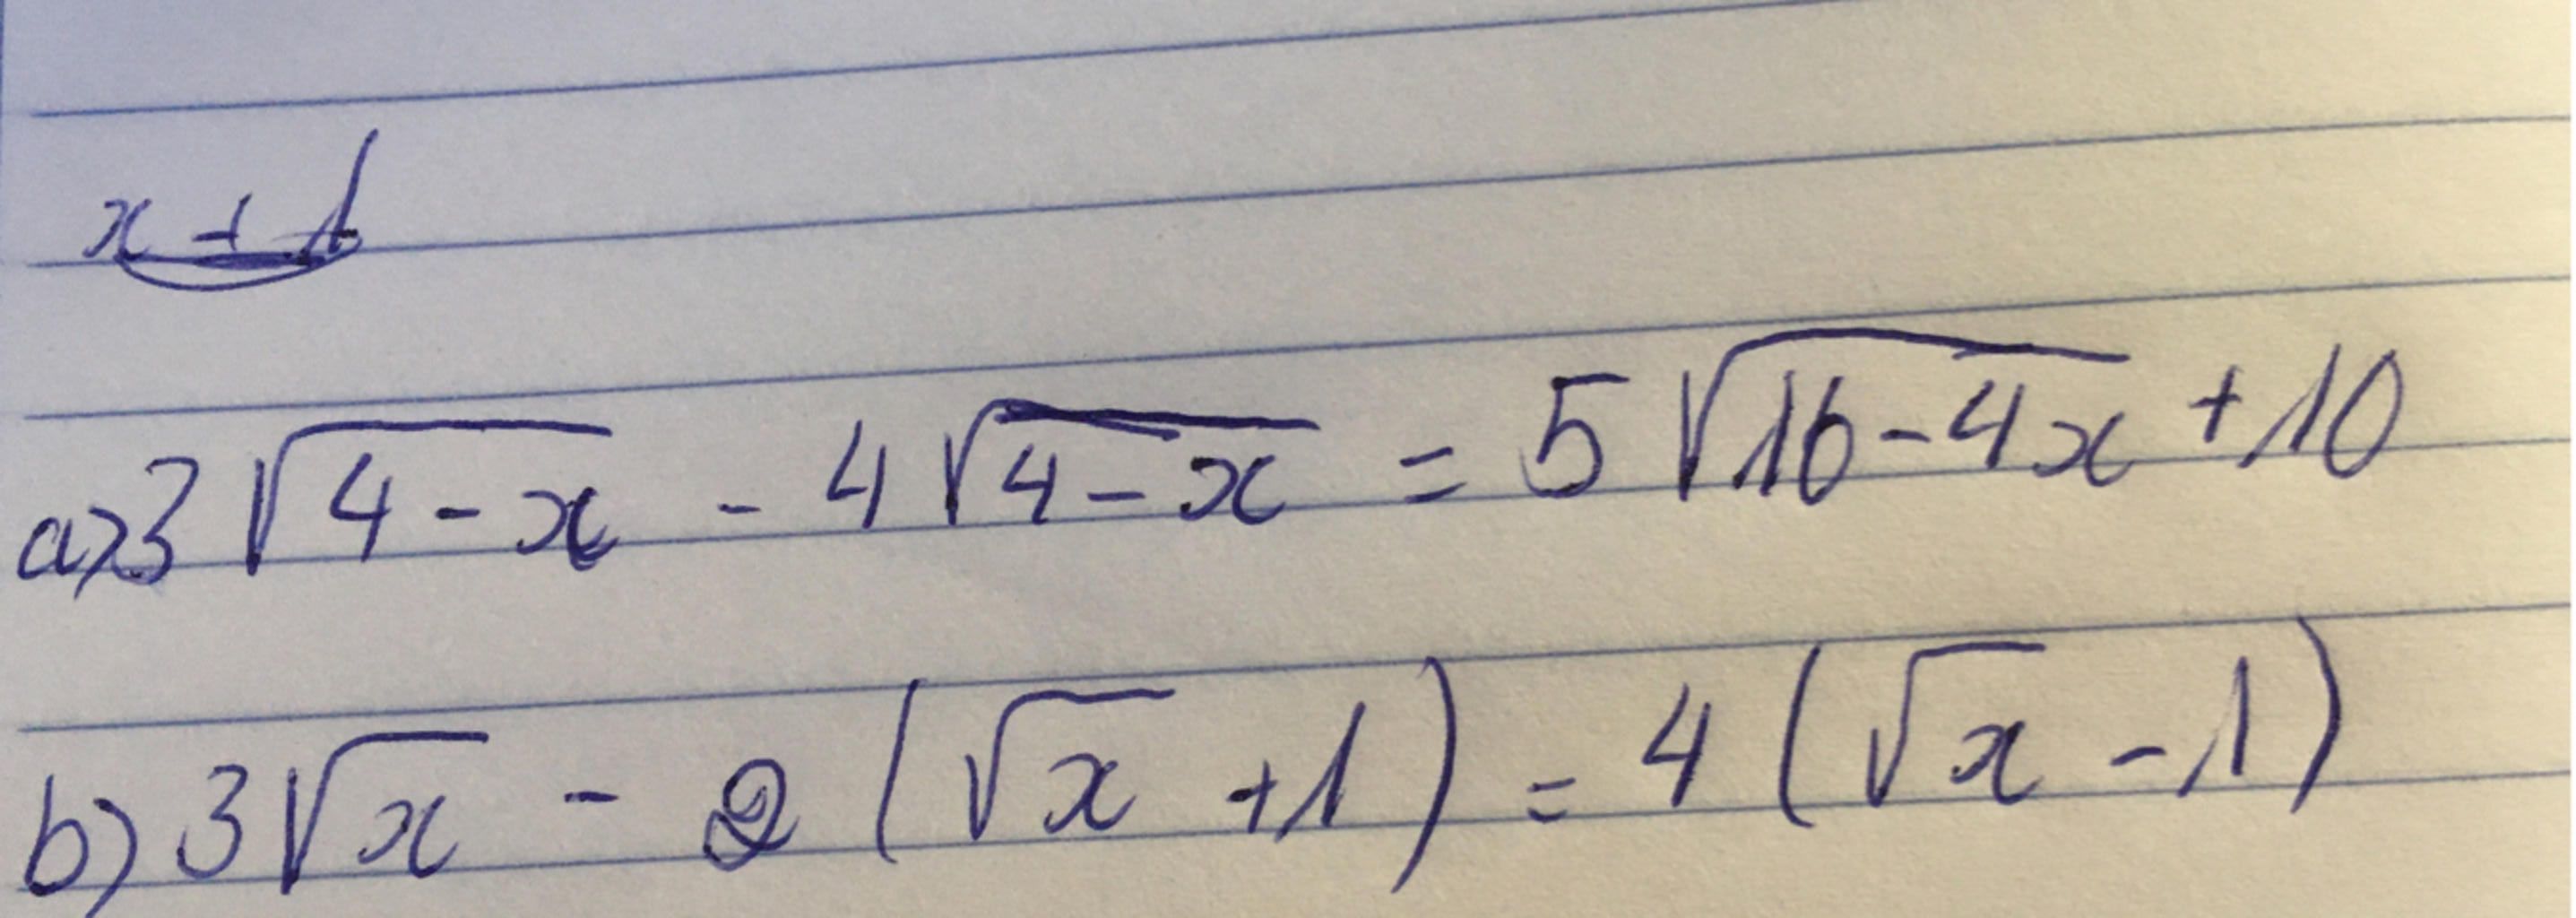 a) 3√(4-x) - 4√(4-x) = 5√(16-4x) + 10
b) 3√x - 2(√x + 1) = 4(√x - 1)